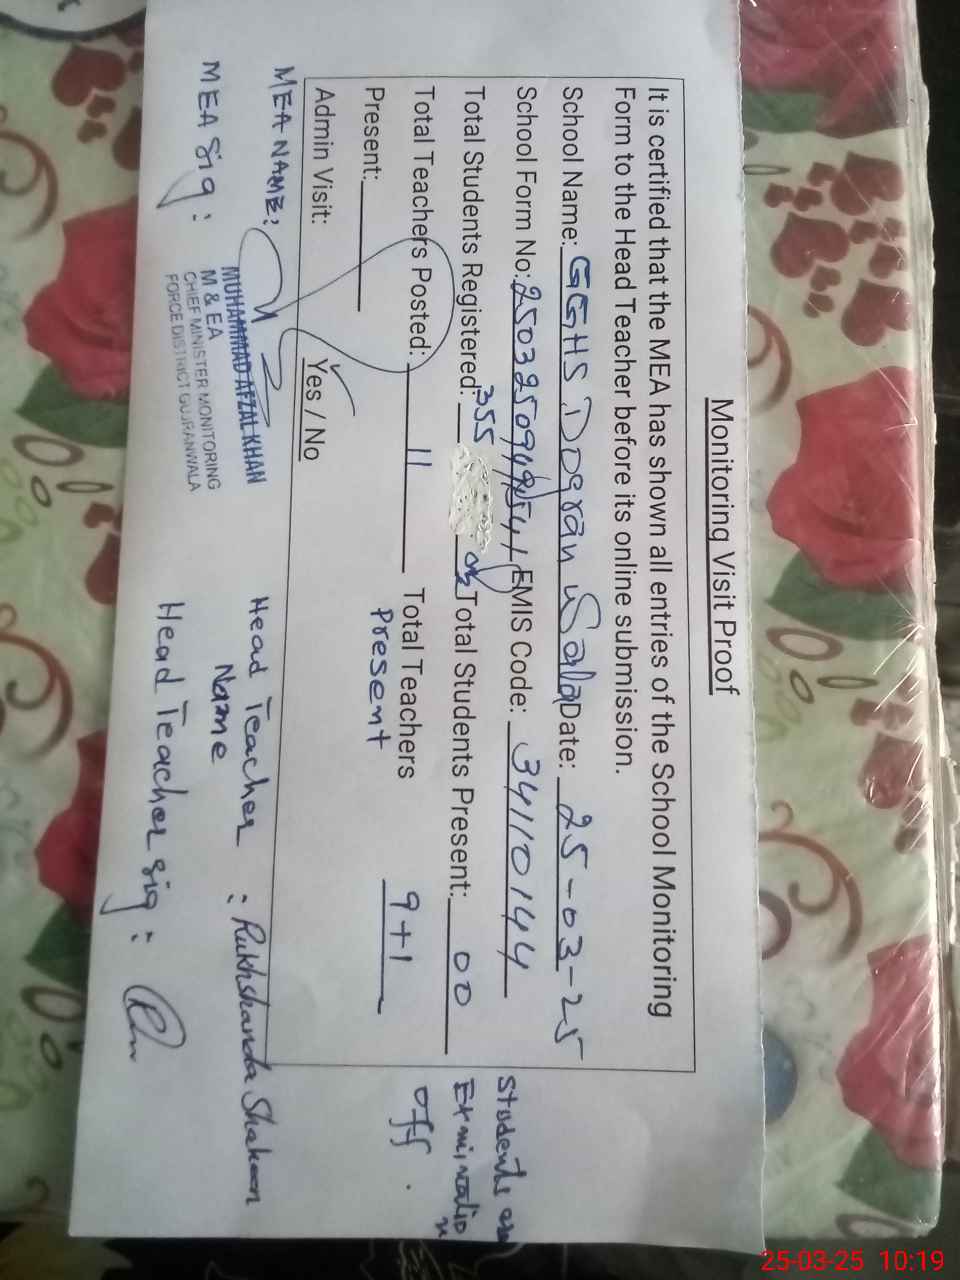 Monitoring Visit Proof
It is certified that the MEA has shown all entries of the School Monitoring
Form to the Head Teacher before its online submission.
School Name: GGHS Dogran Wala Date: 25-03-25
School Form No: EMIS Code: 34110144
Total Students Registered: 355 Total Students Present: 00
Students on
Exmination
off.
Total Teachers Posted: 11 Total Teachers
Present 9+1
Present:
Admin Visit: Yes / No
MEA NAME:
MUHAMMAD AFZAL KHAN
M & EA
CHIEF MINISTER MONITORING
FORCE DISTRICT GUJRANWALA
MEA Sig:
Head Teacher
Name : Rukhshanda Shaheen
Head Teacher sig:
25-03-25 10:19